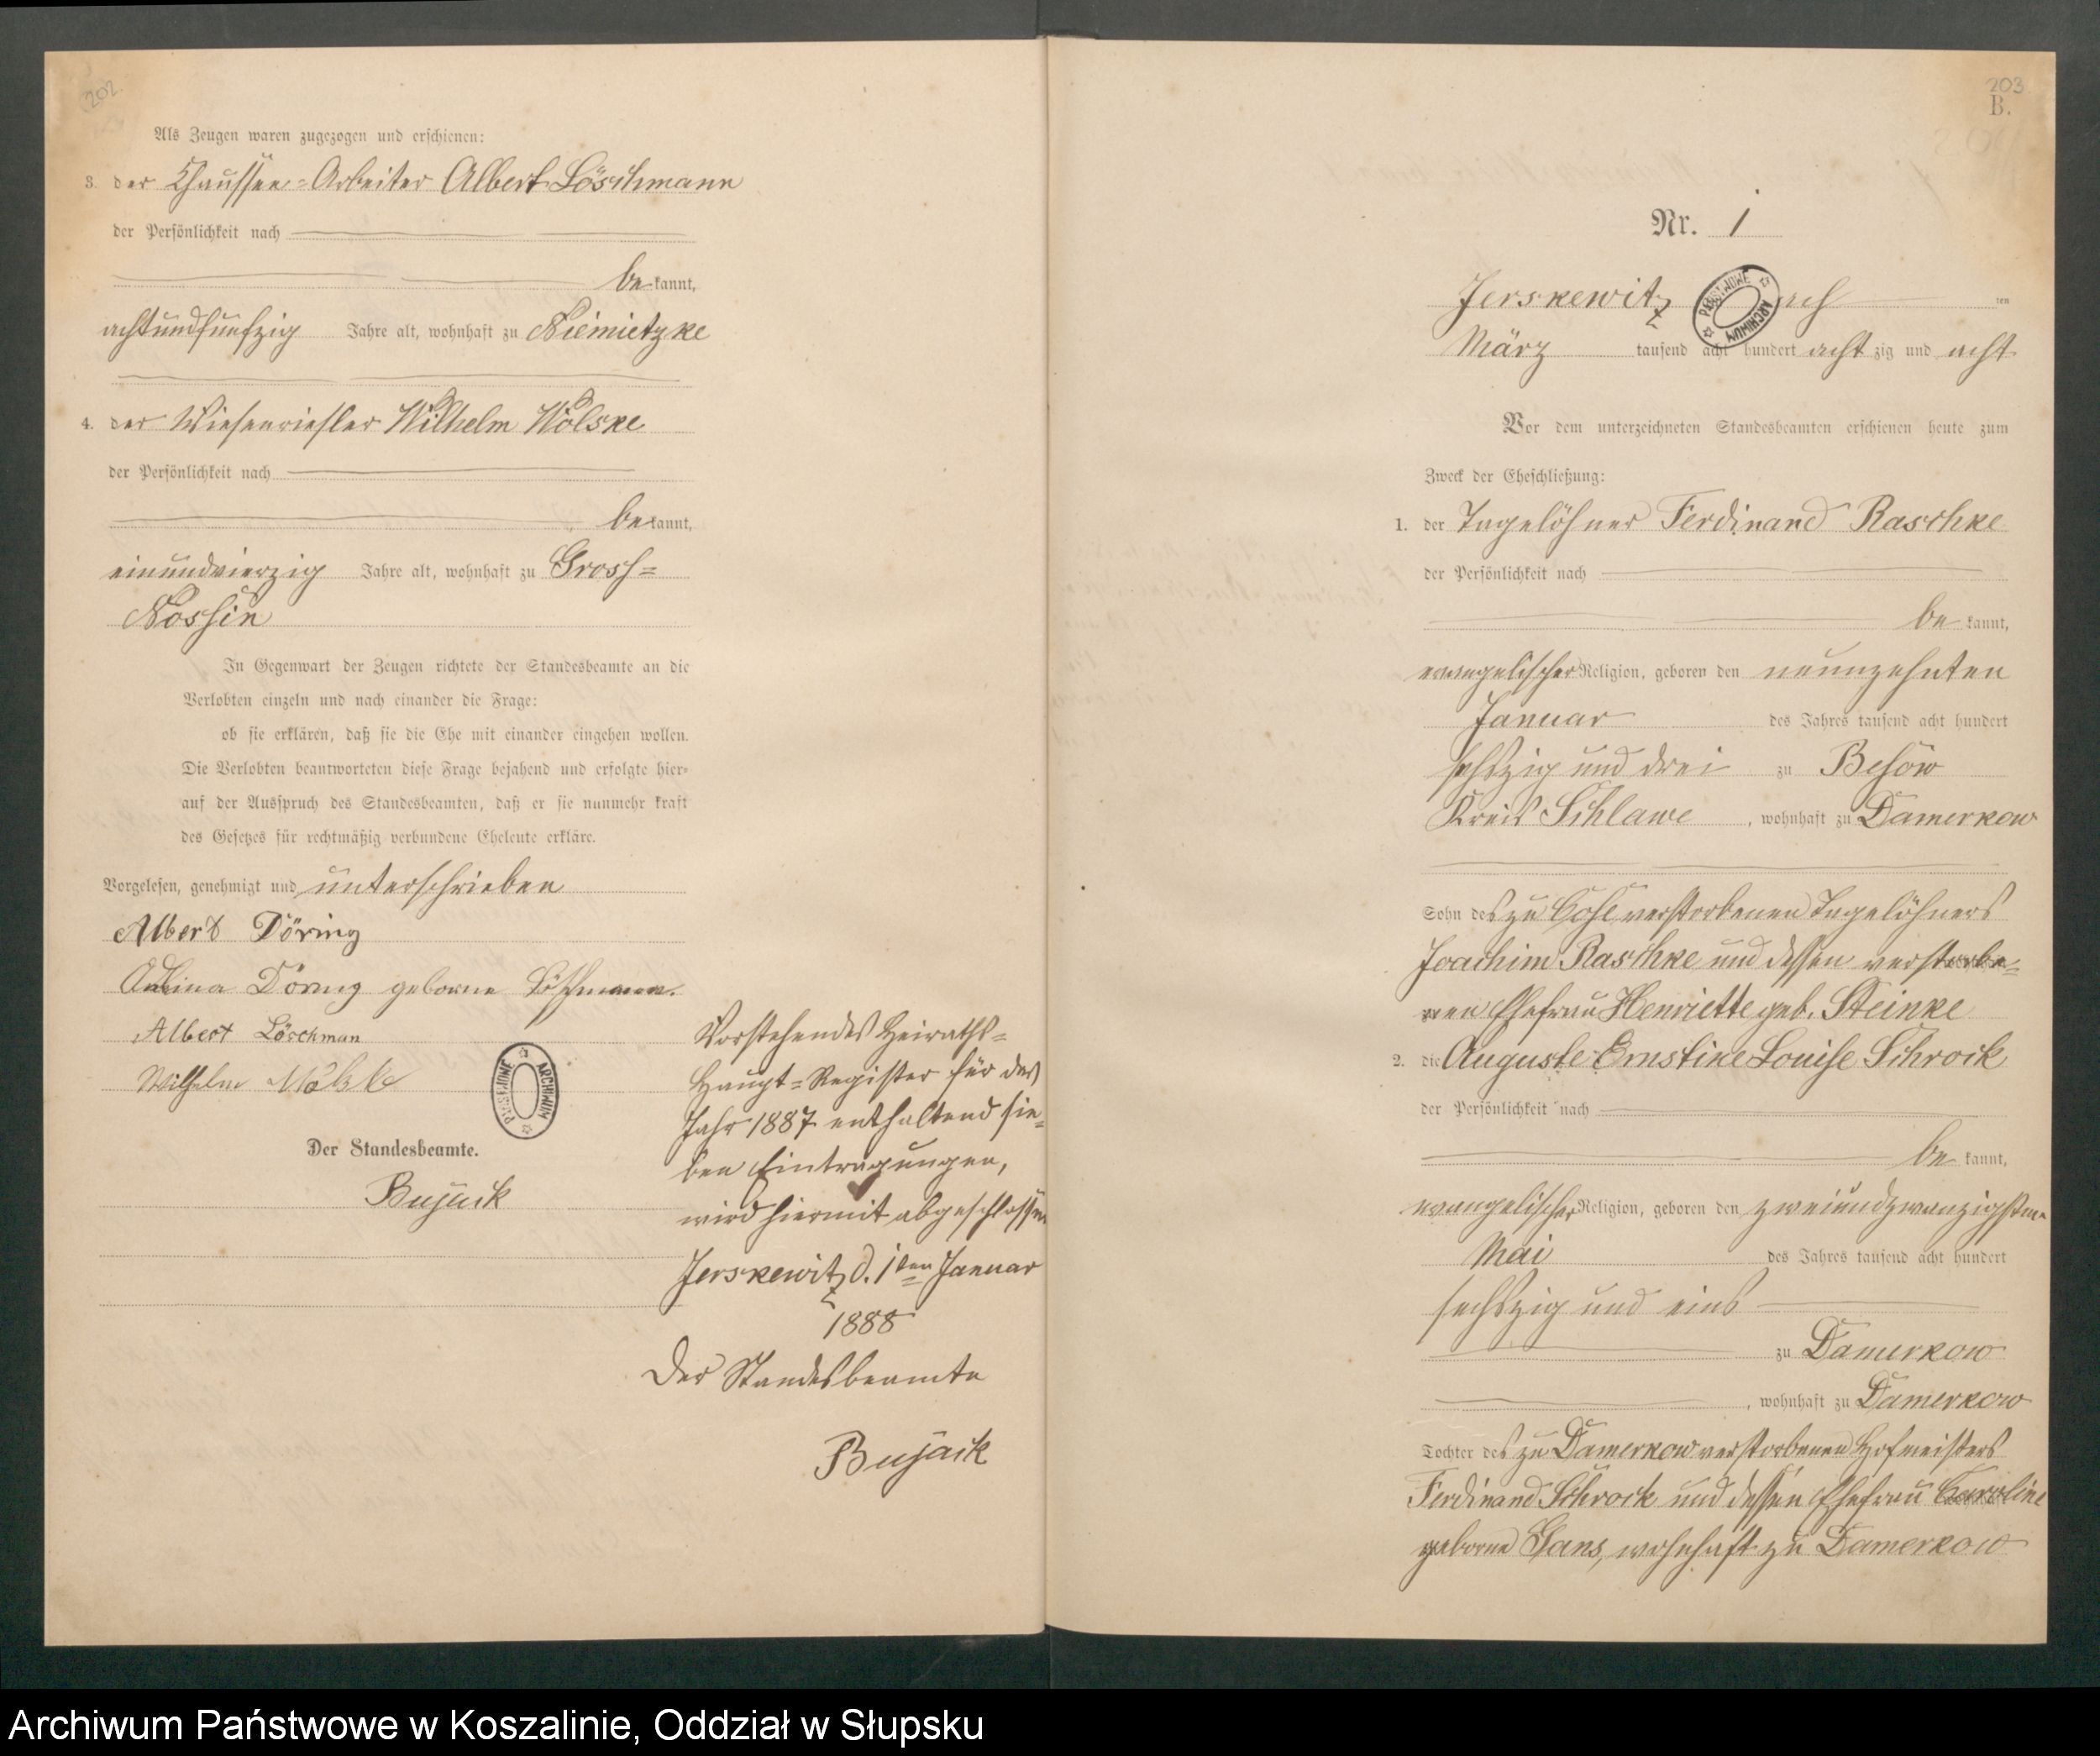 202.
Als Zeugen waren zugezogen und erschienen:
3. der Chaussee-Arbeiter Albert Löschmann
der Persönlichkeit nach
be kannt,
achtundfünfzig Jahre alt, wohnhaft zu Niemietzke
4. der Wiesenriesler Wilhelm Wölske
der Persönlichkeit nach
be kannt,
einundvierzig Jahre alt, wohnhaft zu Gross=
Nossin
In Gegenwart der Zeugen richtete der Standesbeamte an die
Verlobten einzeln und nach einander die Frage:
ob sie erklären, daß sie die Ehe mit einander eingehen wollen.
Die Verlobten beantworteten diese Frage bejahend und erfolgte hier-
auf der Ausspruch des Standesbeamten, daß er sie nunmehr kraft
des Gesetzes für rechtmäßig verbundene Eheleute erkläre.
Vorgelesen, genehmigt und unterschrieben
Albert Döring
Döring geborne
Albert Löschman
Wilhelm
ARCHIWUM PAŃSTWOWE
Der Standesbeamte.
Bujack
Vorstehendes Heiraths=
Haupt=Register für das
Jahr 1887 enthaltend sie=
ben Eintragungen,
wird hiermit abgeschlossen
Jerskewitz d. 1ten Januar
1888
Der Standesbeamte
Bujack
203
B.
Nr. 1
Jerskewitz ten
PAŃSTWOWE ARCHIWUM
März tausend acht hundert acht zig und acht
Vor dem unterzeichneten Standesbeamten erschienen heute zum
Zweck der Eheschließung:
1. der Tagelöhner Ferdinand Raschke
der Persönlichkeit nach
be kannt,
evangelischer Religion, geboren den neunzehnten
Januar des Jahres tausend acht hundert
sechszig und drei zu Besow
Kreis Schlawe, wohnhaft zu Damerkow
Sohn des zu Cose verstorbenen Tagelöhners
Joachim Raschke und dessen verstorbe=
nen Ehefrau Henriette geb. Steinke
2. die Auguste Ernstine Louise Schrock
der Persönlichkeit nach
be kannt,
evangelischer Religion, geboren den zweiundzwanzigsten
Mai des Jahres tausend acht hundert
sechszig und eins
zu Damerkow
, wohnhaft zu Damerkow
Tochter des zu Damerkow verstorbenen Hofmeisters
Ferdinand Schrock und dessen Ehefrau Caroline
geborne Gans, wohnhaft zu Damerkow
Archiwum Państwowe w Koszalinie, Oddział w Słupsku